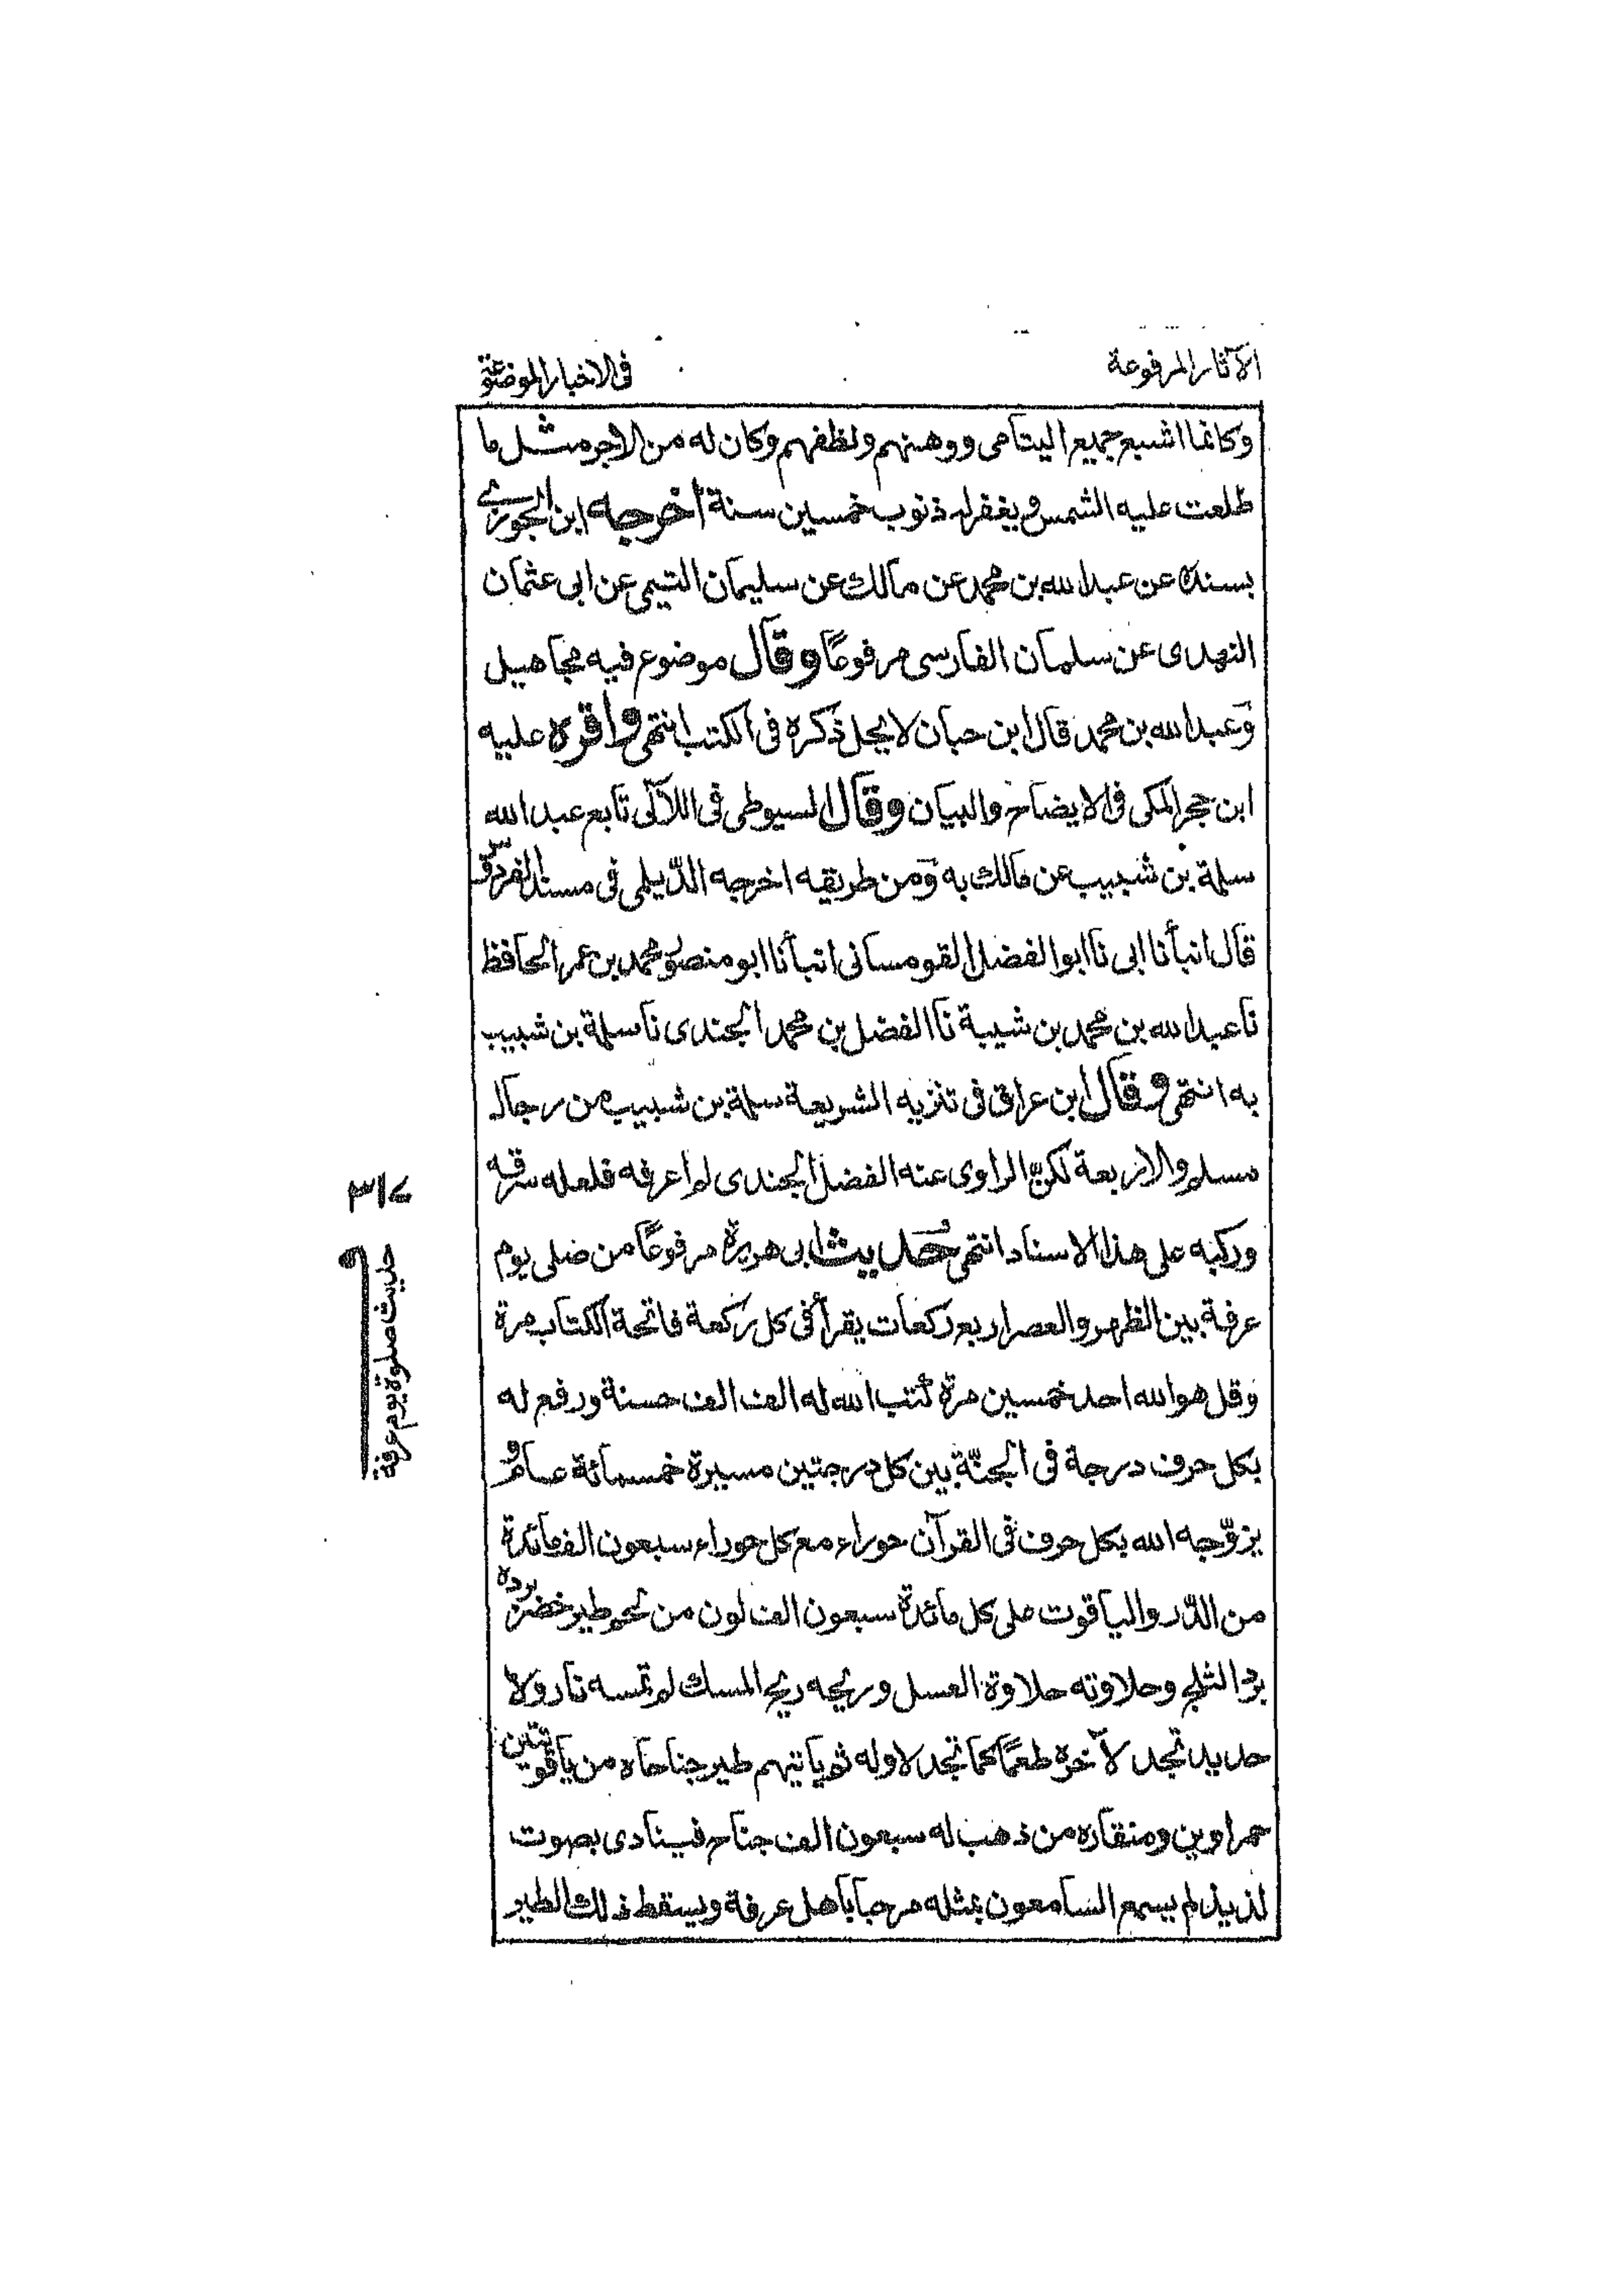 الآثار المرفوعة
فى الاخبار الموضوعة
وكانما اشبع جميع اليتامى ووهنهم ونظفهم وكان له من الاجر مثل ما
طلعت عليه الشمس ويغفر له ذنوب خمسين سنة أخرجه ابن الجوزى
بسنده عن عبد الله بن محمد عن مالك عن سليمان التيمى عن ابى عثمان
النهدى عن سلمان الفارسى مرفوعًا وقال موضوع فيه مجاهيل
وعبد الله بن محمد قال ابن حبان لا يحل ذكره فى الكتب انتهى واقره عليه
ابن حجر المكى فى الايضاح والبيان وقال السيوطى فى اللآلى تابع عبد الله
سلمة بن شبيب عن مالك به ومن طريقه اخرجه الدّيلمى فى مسند الفردوس
قال انبأنا ابى نا ابو الفضل القومسانى انبأنا ابو منصور محمد بن عمر الحافظ
نا عبد الله بن محمد بن شيبة نا الفضل بن محمد الجندى نا سلمة بن شبيب
به انتهى وقال ابن عراق فى تنزيه الشريعة سلمة بن شبيب من رجال
مسلم والاربعة لكنّ الراوى عنه الفضل الجندى لم اعرفه فلعله سرقه
وركبه على هذا الاسناد انتهى حديث ابى هريرة مرفوعًا من صلى يوم
عرفة بين الظهر والعصر اربع ركعات يقرأ فى كل ركعة فاتحة الكتاب مرة
وقل هو الله احد خمسين مرة كتب الله له الف الف حسنة ورفع له
بكل حرف درجة فى الجنّة بين كل درجتين مسيرة خمسمائة عام و
يزوّجه الله بكل حرف فى القرآن حوراء مع كل حوراء سبعون الف مائدة
من الدّر والياقوت على كل مائدة سبعون الف لون من لحم طير خضر برده
برد الثلج وحلاوته حلاوة العسل وريحه ريح المسك لم تمسه نار ولا
حديد تجد لآخره طعمًا كما تجد لاوله ثم ياتيهم طير جناحاه من ياقوتتين
حمراوين ومنقاره من ذهب له سبعون الف جناح فينادى بصوت
لذيذ لم يسمع السامعون بمثله مرحبا باهل عرفة ويسقط ذلك الطير
٣١٧
حديث صلوة يوم عرفة